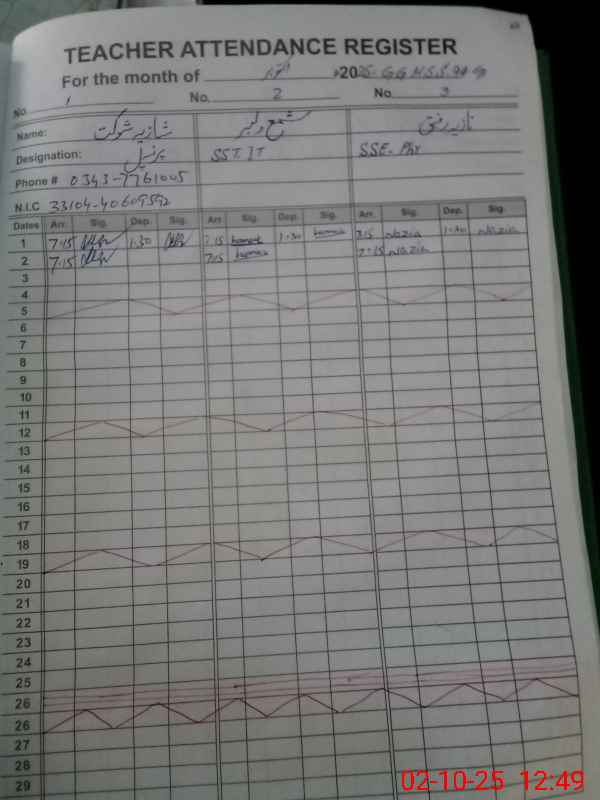 TEACHER ATTENDANCE REGISTER
For the month of اکتوبر 2025 G G H S S 90 G
No. 1 No. 2 No. 3
Name: شازیہ شوکت نازیہ رفیق
Designation: پرنسپل SST. IT SSE. Phy
Phone # 0343-7761005
N.I.C 33104-40609592
Dates Arr. Sig. Dep. Sig. Arr. Sig. Dep. Sig. Arr. Sig. Dep. Sig.
1 7:15 1:30 7:15 1:30 7:15 Nazia 1:30 Nazia
2 7:15 7:15 7:15 Nazia
3
4
5
6
7
8
9
10
11
12
13
14
15
16
17
18
19
20
21
22
23
24
25
26
26
27
28
29
02-10-25 12:49